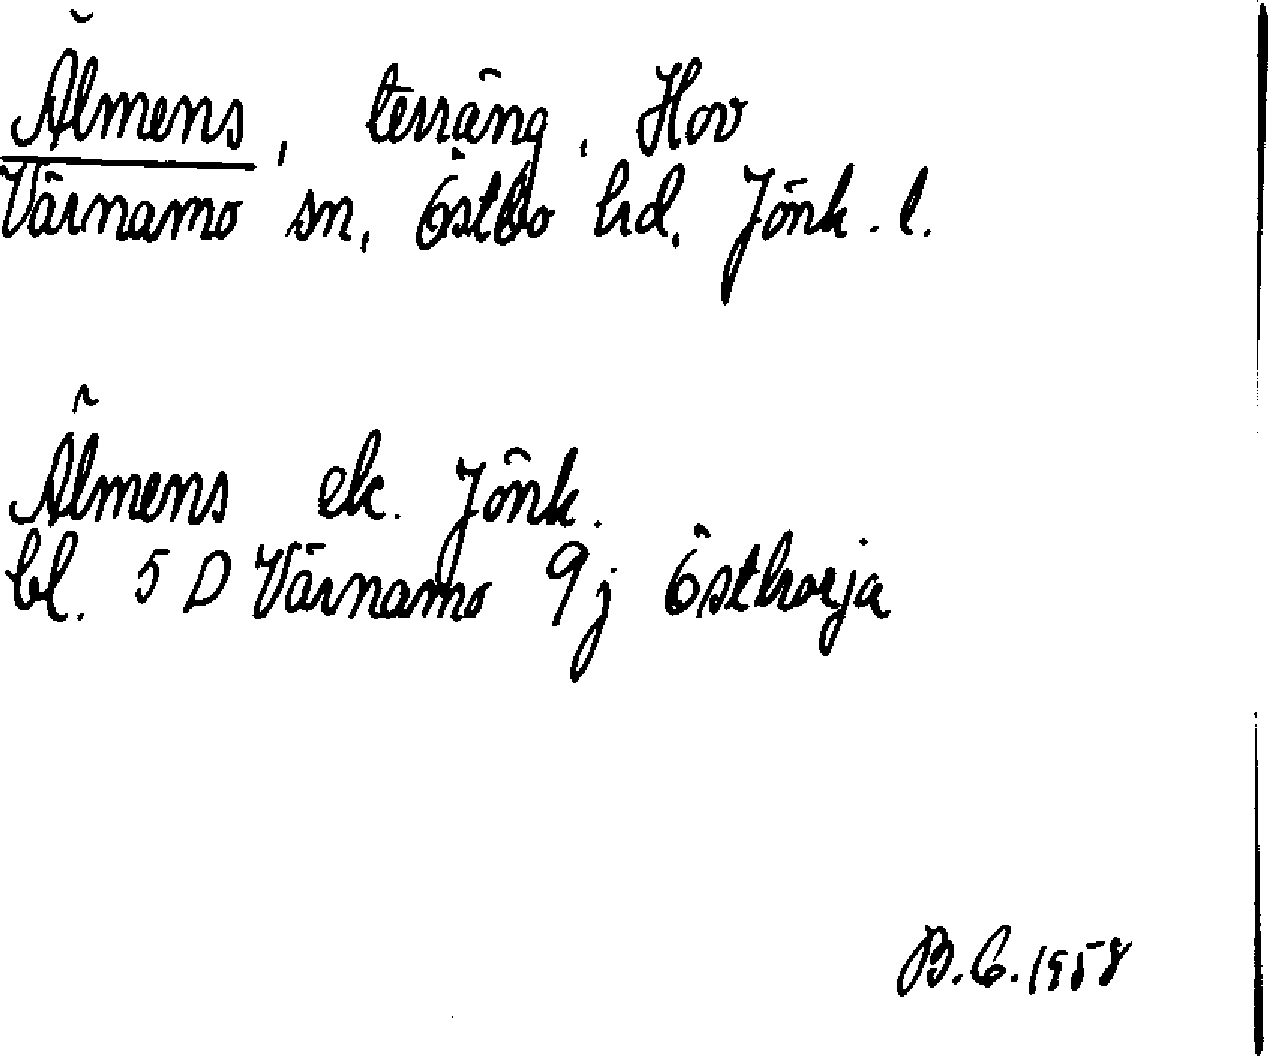 Älmens, terräng. Hov
Värnamo sn, Östbo hd, Jönk. l.
Älmens ek. Jönk.
bl. 5 D Värnamo 9 j Östhorja
B.C. 1958